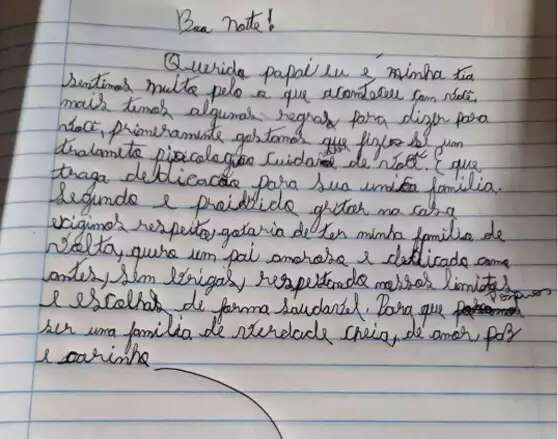 Boa Noite!
Querido papai eu e minha tia
sentimos muito pelo o que aconteceu com você.
mais temos algumas regras para dizer para
você, primeramente gostamos que fizese um
tratameto picicologico cuidase de você. E que
traga dedicacão para sua unica família.
Segundo e proidrido gritar na casa
exigimos respeito, gotaria de ter minha familia de
volta, quero um pai amoroso e dedicado como
antes, sem brigas, respeitando nossos limites
e escolhas de forma saudavel. Para que possamos
ser uma familia de verdade cheia, de amor, paz
e carinho